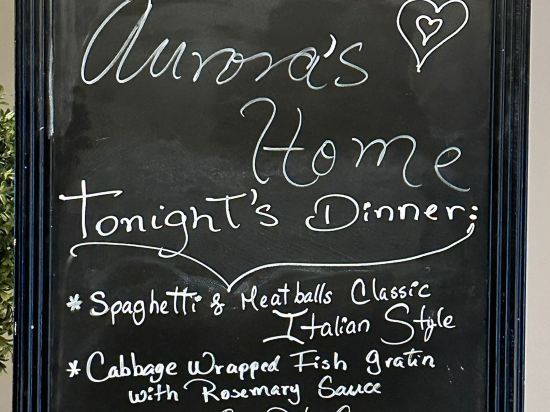 Aurora's
Home
Tonight's Dinner:
* Spaghetti & Meatballs Classic
Italian Style
* Cabbage Wrapped Fish gratin
with Rosemary Sauce